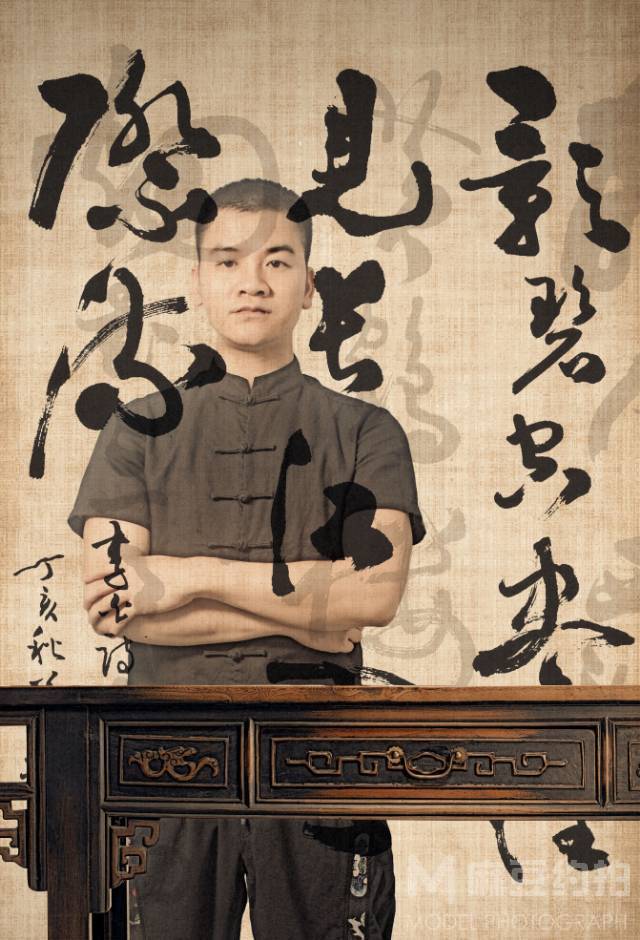 影碧空尽
見長江
際流
李白詩
丁亥秋
麻豆约拍
MODEL PHOTOGRAPH